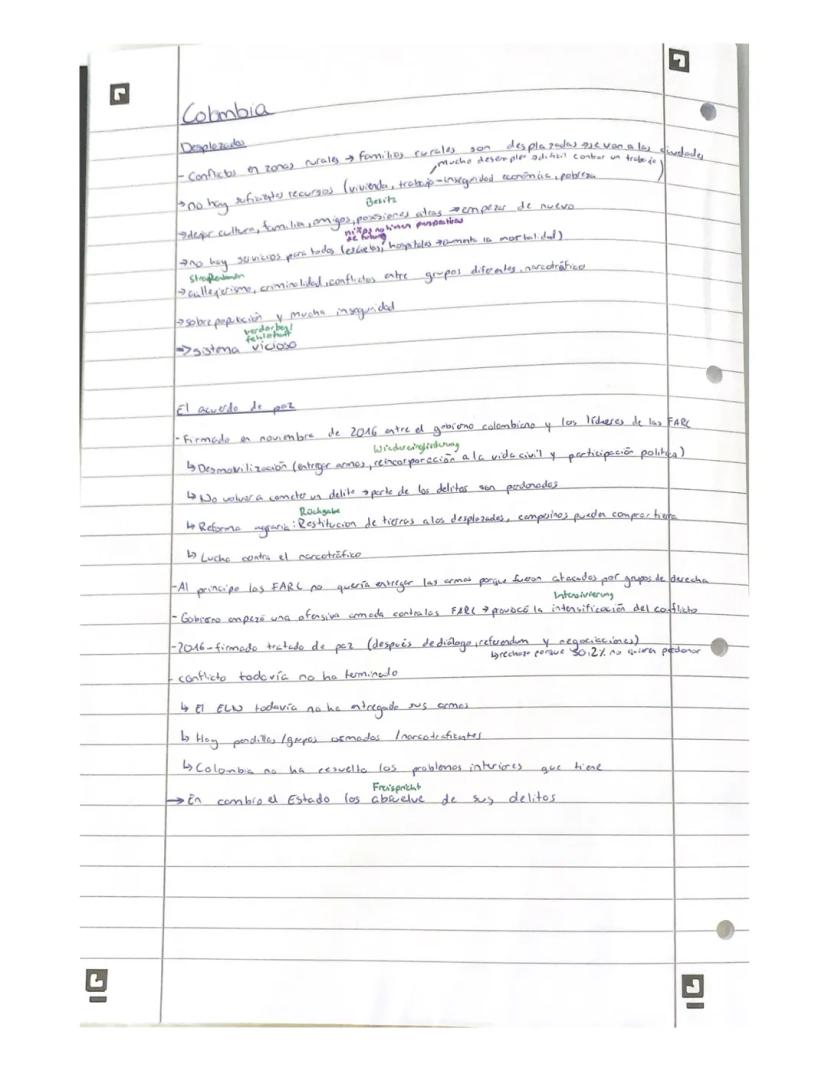 Colombia
Desplazados
- Conflictos en zonas rurales → familias rurales son desplazadas se van a las ciudades
mucho desempleo difícil contrar un trabajo
→ no hay suficientes recursos (vivienda, trabajo - inseguridad económica, pobreza)
Besitz
→ dejar cultura, familia, amigos, posesiones atras → empezar de nuevo
niños no tienen perspectivas
de futuro
→ no hay servicios para todos (escuelas, hospitales → aumenta la mortalidad)
→ callejerismo, criminalidad, conflictos entre grupos diferentes, narcotráfico
→ sobrepoplación y mucha inseguridad
verdorben/
fehlerhaft
→ sistema vicioso
El acuerdo de paz
- Firmado en noviembre de 2016 entre el gobierno colombiano y los líderes de las FARC
Wiedereingliederung
↳ Desmovilización (entregar armas, reincorporación a la vida civil y participación política)
↳ No volver a cometer un delito → parte de los delitos son perdonados
Rückgabe
↳ Reforma agraria: Restitucion de tierras a los desplazados, campesinos pueden comprar tierra
↳ Lucha contra el narcotráfico
- Al principio las FARC no quería entregar las armas porque fueron atacados por grupos de derecha
Intensivierung
- Gobierno empezó una ofensiva armada contra las FARC → provocó la intensificación del conflicto
- 2016 - firmado tratado de paz (después de diálogo, referendum y negociaciones)
↳ rechazo porque 50,2% no quieren perdonar
- conflicto todavía no ha terminado
↳ El ELN todavía no ha entregado sus armas
↳ Hay pandillas/grupos armados/narcotraficantes
↳ Colombia no ha resuelto los problemas interiores que tiene
Freispricht
→ En cambio el Estado los absuelve de sus delitos